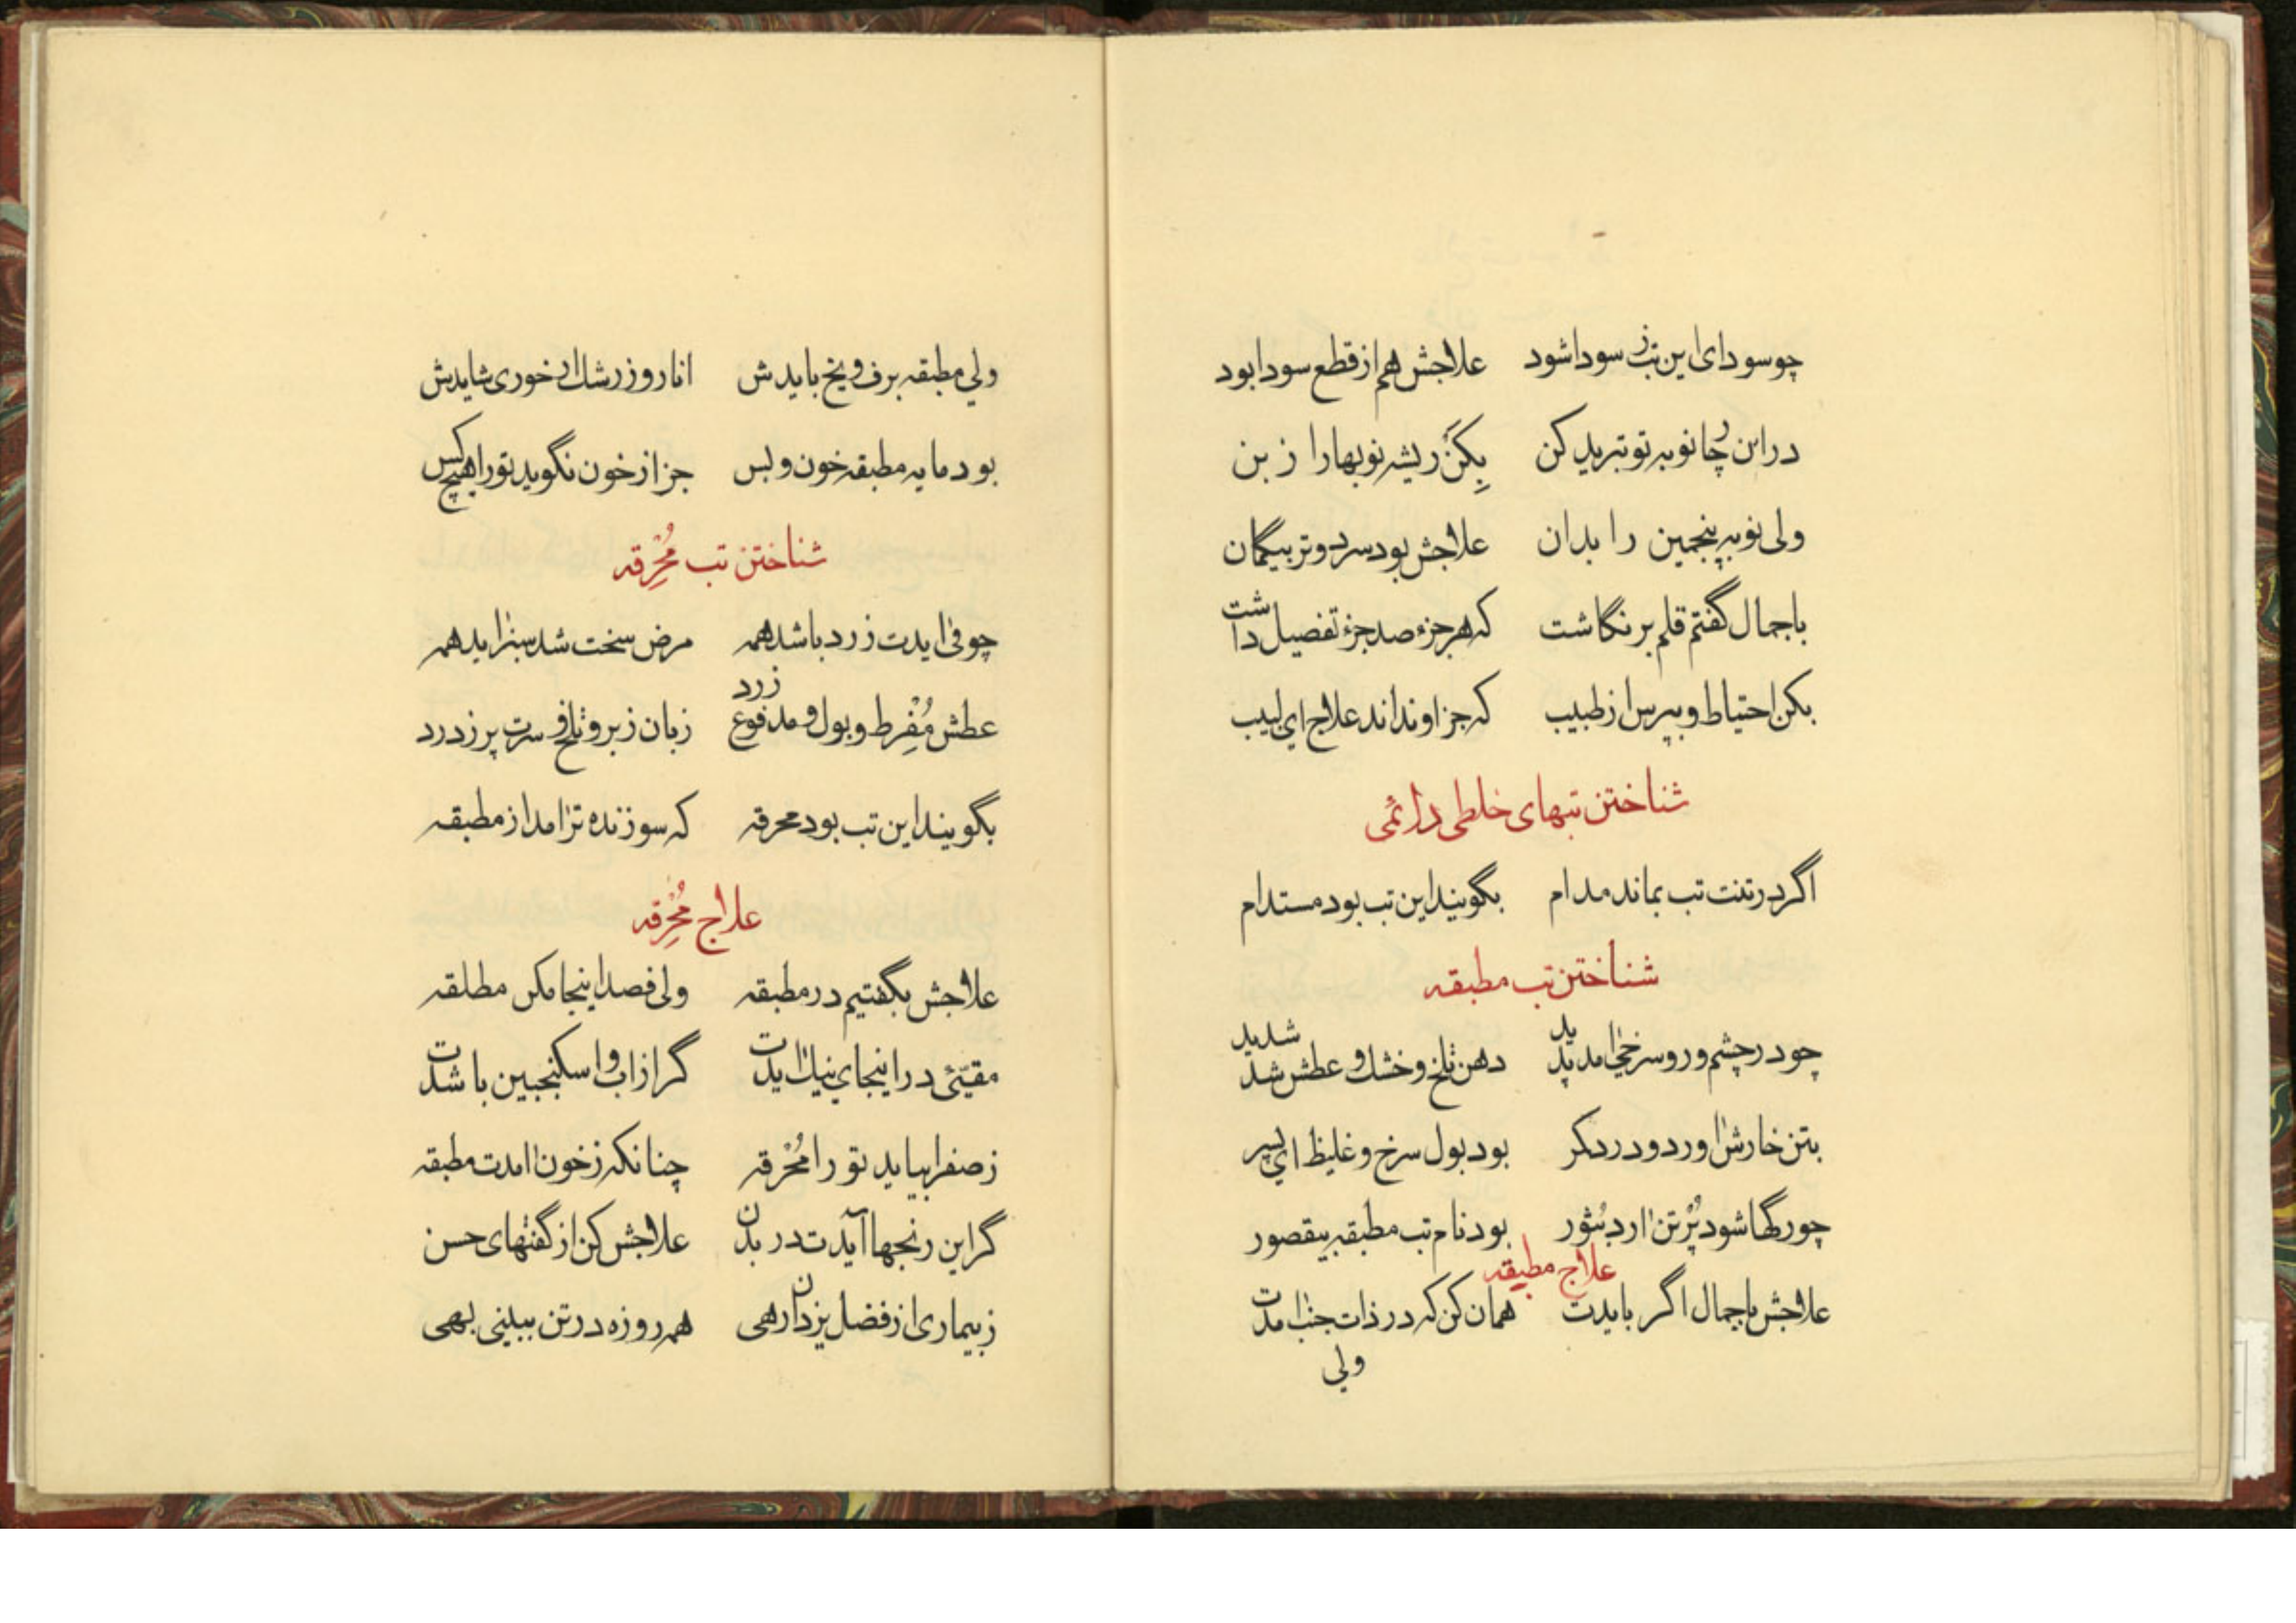 چو سودای این تب ز سودا شود علاجش هم از قطع سودا بود
در این چار نوبه تو تبرید کن بِکَنْ ریشه نوبها را ز بن
ولی نوبه پنجمین را بدان علاجش بود سرد و تر بیگمان
باجمال گفتم قلم بر نگاشت که هر جزء صد جزء تفصیل داشت
بکن احتیاط و بپرس از طبیب که جز او نداند علاج ای لبیب
شناختن تبهای خلطی دائمی
اگر در تنت تب بماند مدام بگویند این تب بود مستدام
شناختن تب مطبقه
چو در چشم و رو سرخی آمد پدید دهن تلخ و خشک و عطش شد شدید
بتن خارش آورد و دردکر بود بول سرخ و غلیظ ای پسر
چو رگها شود پُر تن آرد بُثور بود نام تب مطبقه بیقصور
علاج مطبقه
علاجش باجمال اگر بایدت همان کن که در ذات جنب آمدت
ولی
ولی مطبقه برف و یخ بایدش انار و زرشک ار خوری شایدش
بود مایه مطبقه خون و بس جز از خون نگوید تو را هیچکس
شناختن تب مُحْرِقه
چو قی آیدت زرد باشد همه مرض سخت شد سبز آید همه
عطش مُفْرِط و بول و مدفوع زرد زبان زبر و تلخ و سرت پر ز درد
بگویند این تب بود محرقه که سوزنده تر آمد از مطبقه
علاج مُحْرِقه
علاجش بگفتیم در مطبقه ولی فصد اینجا مکن مطلقه
مقیّئ در اینجای نیک آیدت گر از آب و اسکنجبین باشدت
ز صفرا بیاید تو را مُحْرقه چنانکه ز خون آمدت مطبقه
گر این رنجها آیدت در بدن علاجش کن از گفتهای حسن
ز بیماری از فضل یزدان رهی همه روزه در تن ببینی بهی